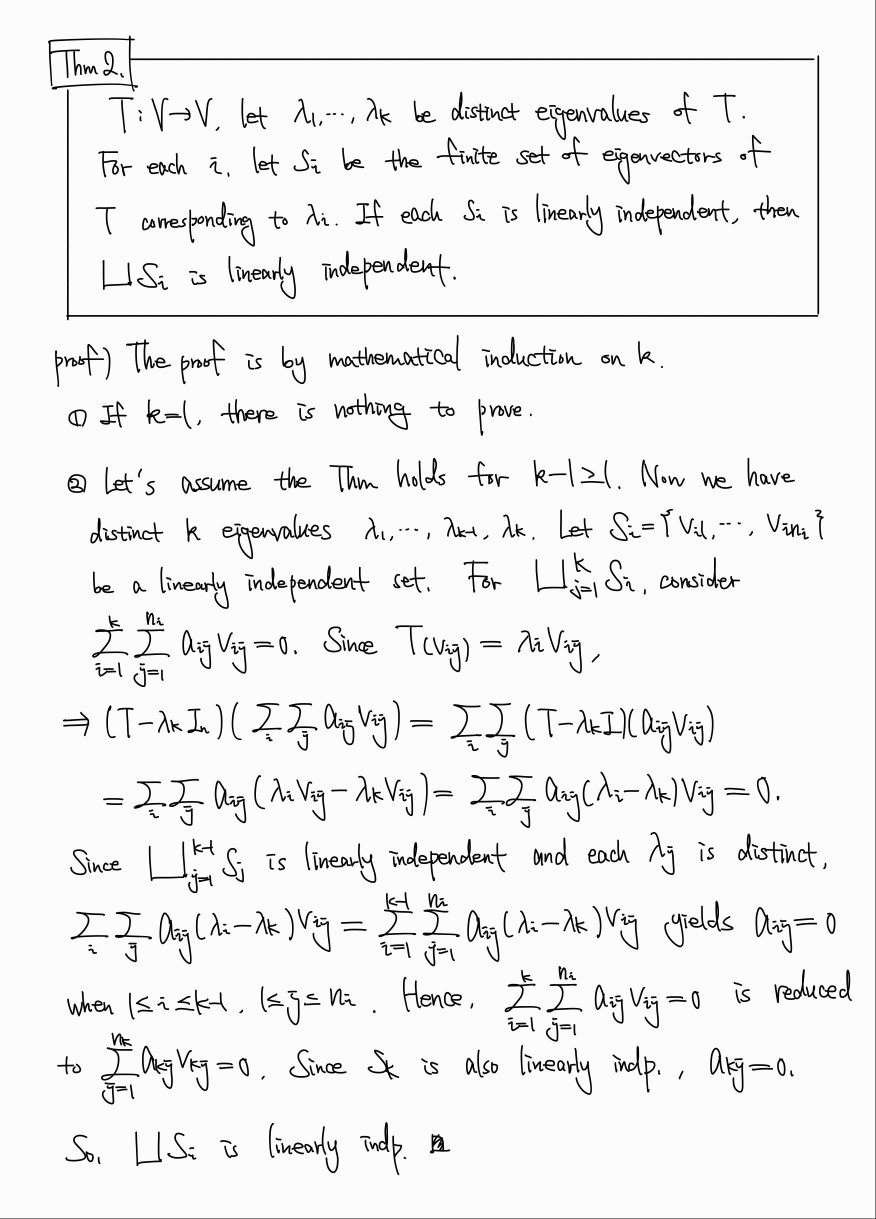 Thm 2.
T : V → V, let λ₁, ⋯, λₖ be distinct eigenvalues of T.
For each i, let Sᵢ be the finite set of eigenvectors of
T corresponding to λᵢ. If each Sᵢ is linearly independent, then
⨆Sᵢ is linearly independent.
proof) The proof is by mathematical induction on k.
① If k=1, there is nothing to prove.
② Let's assume the Thm holds for k-1≥1. Now we have
distinct k eigenvalues λ₁, ⋯, λₖ₋₁, λₖ. Let Sᵢ={Vᵢ₁, ⋯, V_{in_i}}
be a linearly independent set. For ⨆_{j=1}^{k} Sᵢ, consider
∑_{i=1}^{k} ∑_{j=1}^{n_i} a_{ij} V_{ij} = 0. Since T(V_{ij}) = λᵢ V_{ij},
⇒ (T-λₖIₙ)(∑_i ∑_j a_{ij} V_{ij}) = ∑_i ∑_j (T-λₖI)(a_{ij} V_{ij})
= ∑_i ∑_j a_{ij}(λᵢ V_{ij} - λₖ V_{ij}) = ∑_i ∑_j a_{ij}(λᵢ-λₖ)V_{ij} = 0.
Since ⨆_{j=1}^{k-1} S_j is linearly independent and each λ_j is distinct,
∑_i ∑_j a_{ij}(λᵢ-λₖ)V_{ij} = ∑_{i=1}^{k-1} ∑_{j=1}^{n_i} a_{ij}(λᵢ-λₖ)V_{ij} yields a_{ij}=0
when 1≤i≤k-1, 1≤j≤nᵢ. Hence, ∑_{i=1}^{k} ∑_{j=1}^{n_i} a_{ij} V_{ij} = 0 is reduced
to ∑_{j=1}^{n_k} a_{kj} V_{kj} = 0. Since Sₖ is also linearly indp., a_{kj}=0.
So, ⨆Sᵢ is linearly indp.